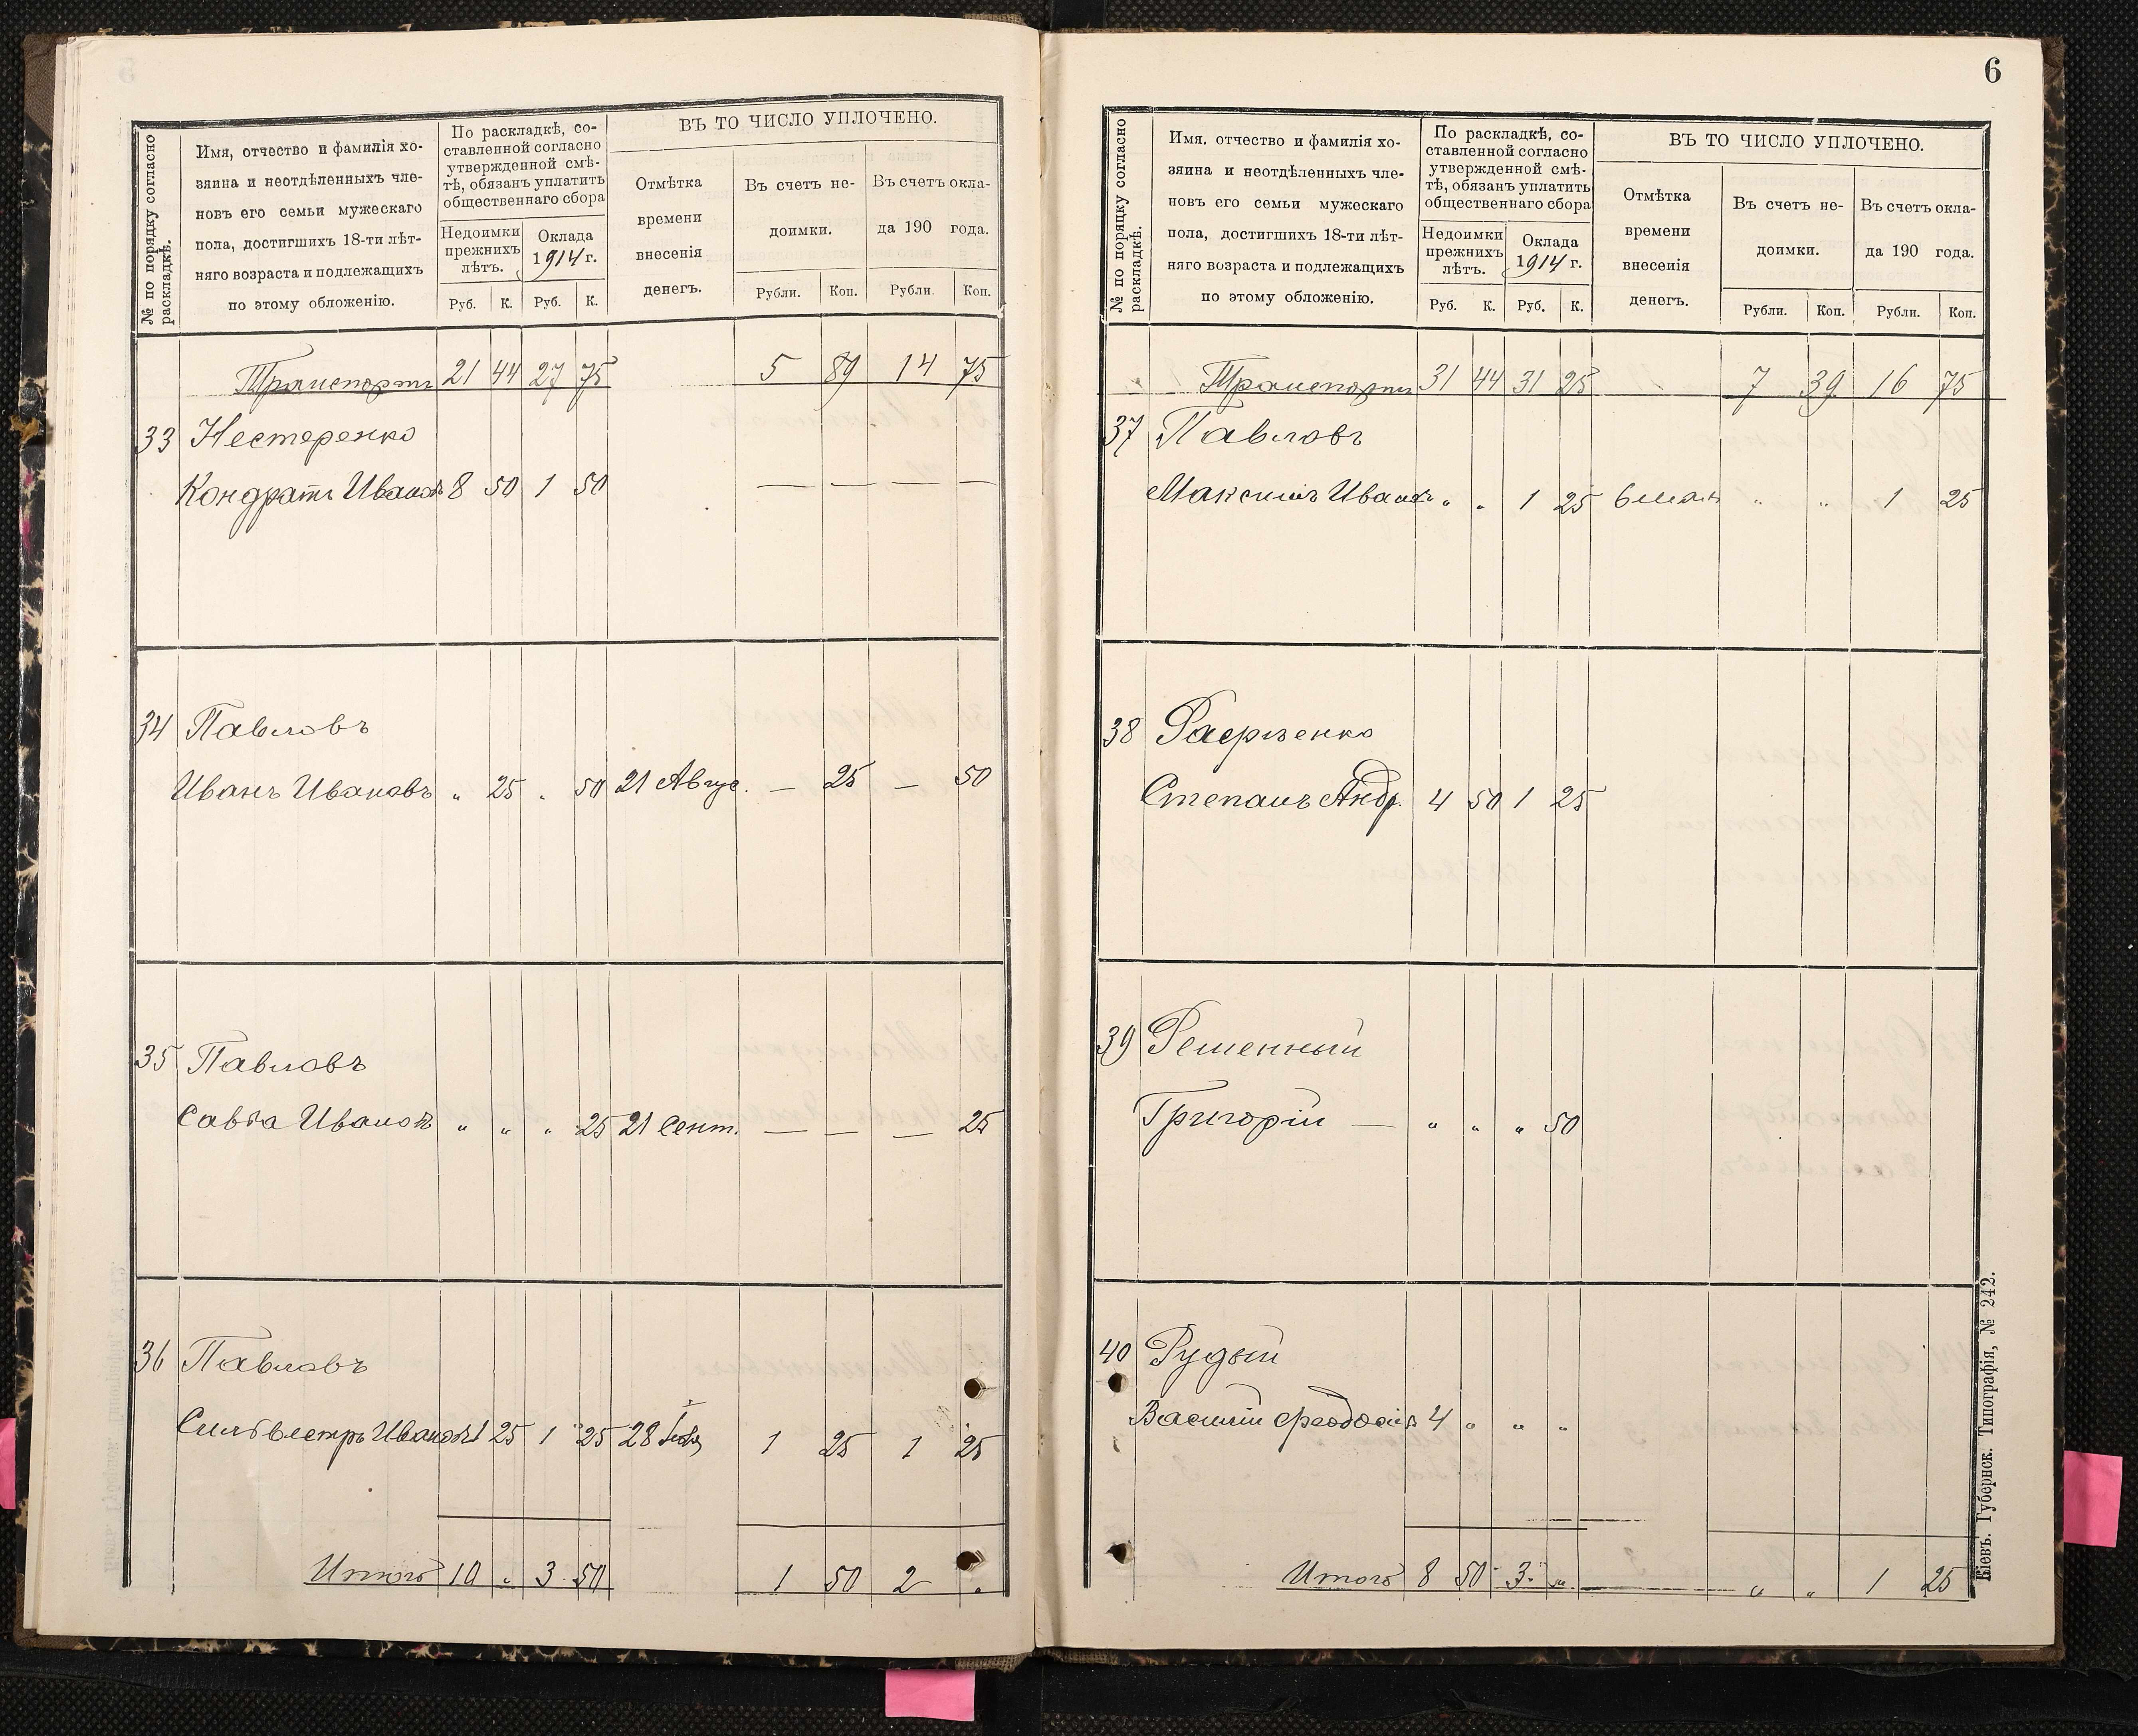 № по порядку согласно раскладкѣ.
Имя, отчество и фамилія хо-
зяина и неотдѣленныхъ чле-
новъ его семьи мужескаго
пола, достигшихъ 18-ти лѣт-
няго возраста и подлежащихъ
по этому обложенію.
По раскладкѣ, со-
ставленной согласно
утвержденной смѣ-
тѣ, обязанъ уплатить
общественнаго сбора
Недоимки
прежнихъ
лѣтъ.
Оклада
1914 г.
Руб. К. Руб. К.
ВЪ ТО ЧИСЛО УПЛОЧЕНО.
Отмѣтка
времени
внесенія
денегъ.
Въ счетъ не-
доимки.
Въ счетъ окла-
да 190 года.
Рубли. Коп. Рубли. Коп.
Транспортъ 21 44 27 75 5 89 14 75
33 Нестеренко
Кондратъ Ивановъ 8 50 1 50 — — — —
34 Павловъ
Иванъ Ивановъ „ 25 „ 50 21 Авгус. — 25 — 50
35 Павловъ
Савва Ивановъ „ „ „ 25 21 Сент. — — — 25
36 Павловъ
Сильвестръ Ивановъ 1 25 1 25 28 1 25 1 25
Итого 10 „ 3 50 1 50 2 „
6
№ по порядку согласно раскладкѣ.
Имя, отчество и фамилія хо-
зяина и неотдѣленныхъ чле-
новъ его семьи мужескаго
пола, достигшихъ 18-ти лѣт-
няго возраста и подлежащихъ
по этому обложенію.
По раскладкѣ, со-
ставленной согласно
утвержденной смѣ-
тѣ, обязанъ уплатить
общественнаго сбора
Недоимки
прежнихъ
лѣтъ.
Оклада
1914 г.
Руб. К. Руб. К.
ВЪ ТО ЧИСЛО УПЛОЧЕНО.
Отмѣтка
времени
внесенія
денегъ.
Въ счетъ не-
доимки.
Въ счетъ окла-
да 190 года.
Рубли. Коп. Рубли. Коп.
Транспортъ 31 44 31 25 7 39 16 75
37 Павловъ
Максимъ Ивановъ „ „ 1 25 6 мая „ „ 1 25
38
Степанъ Андр. 4 50 1 25
39 Решенный
Григорій — „ „ „ 50
40 Рудый
Василій Феодосіевъ 4 „ „ „
Итого 8 50 3 „ „ „ 1 25
Кіевъ. Губернск. Типографія, № 242.